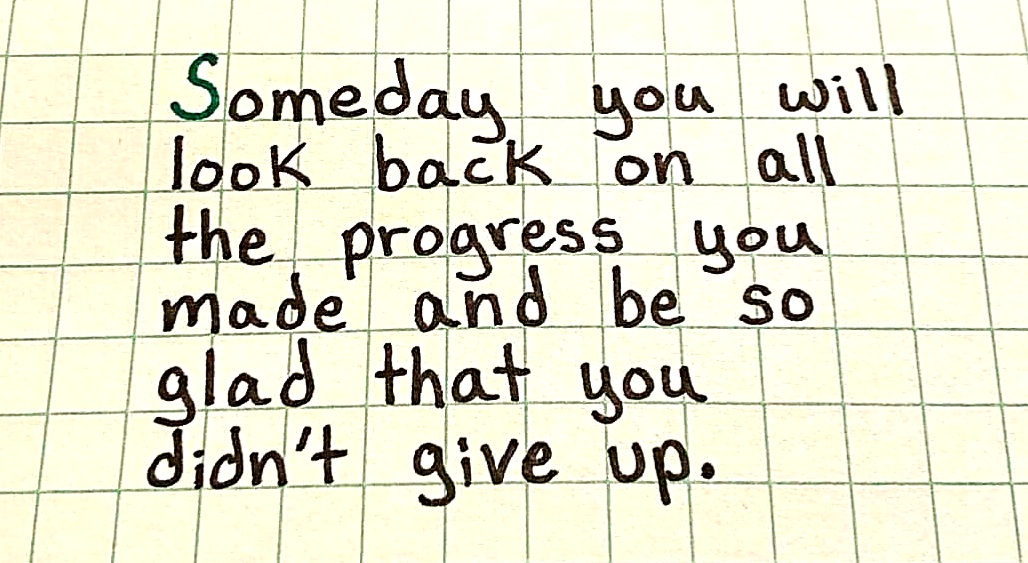 Someday you will
look back on all
the progress you
made and be so
glad that you
didn't give up.